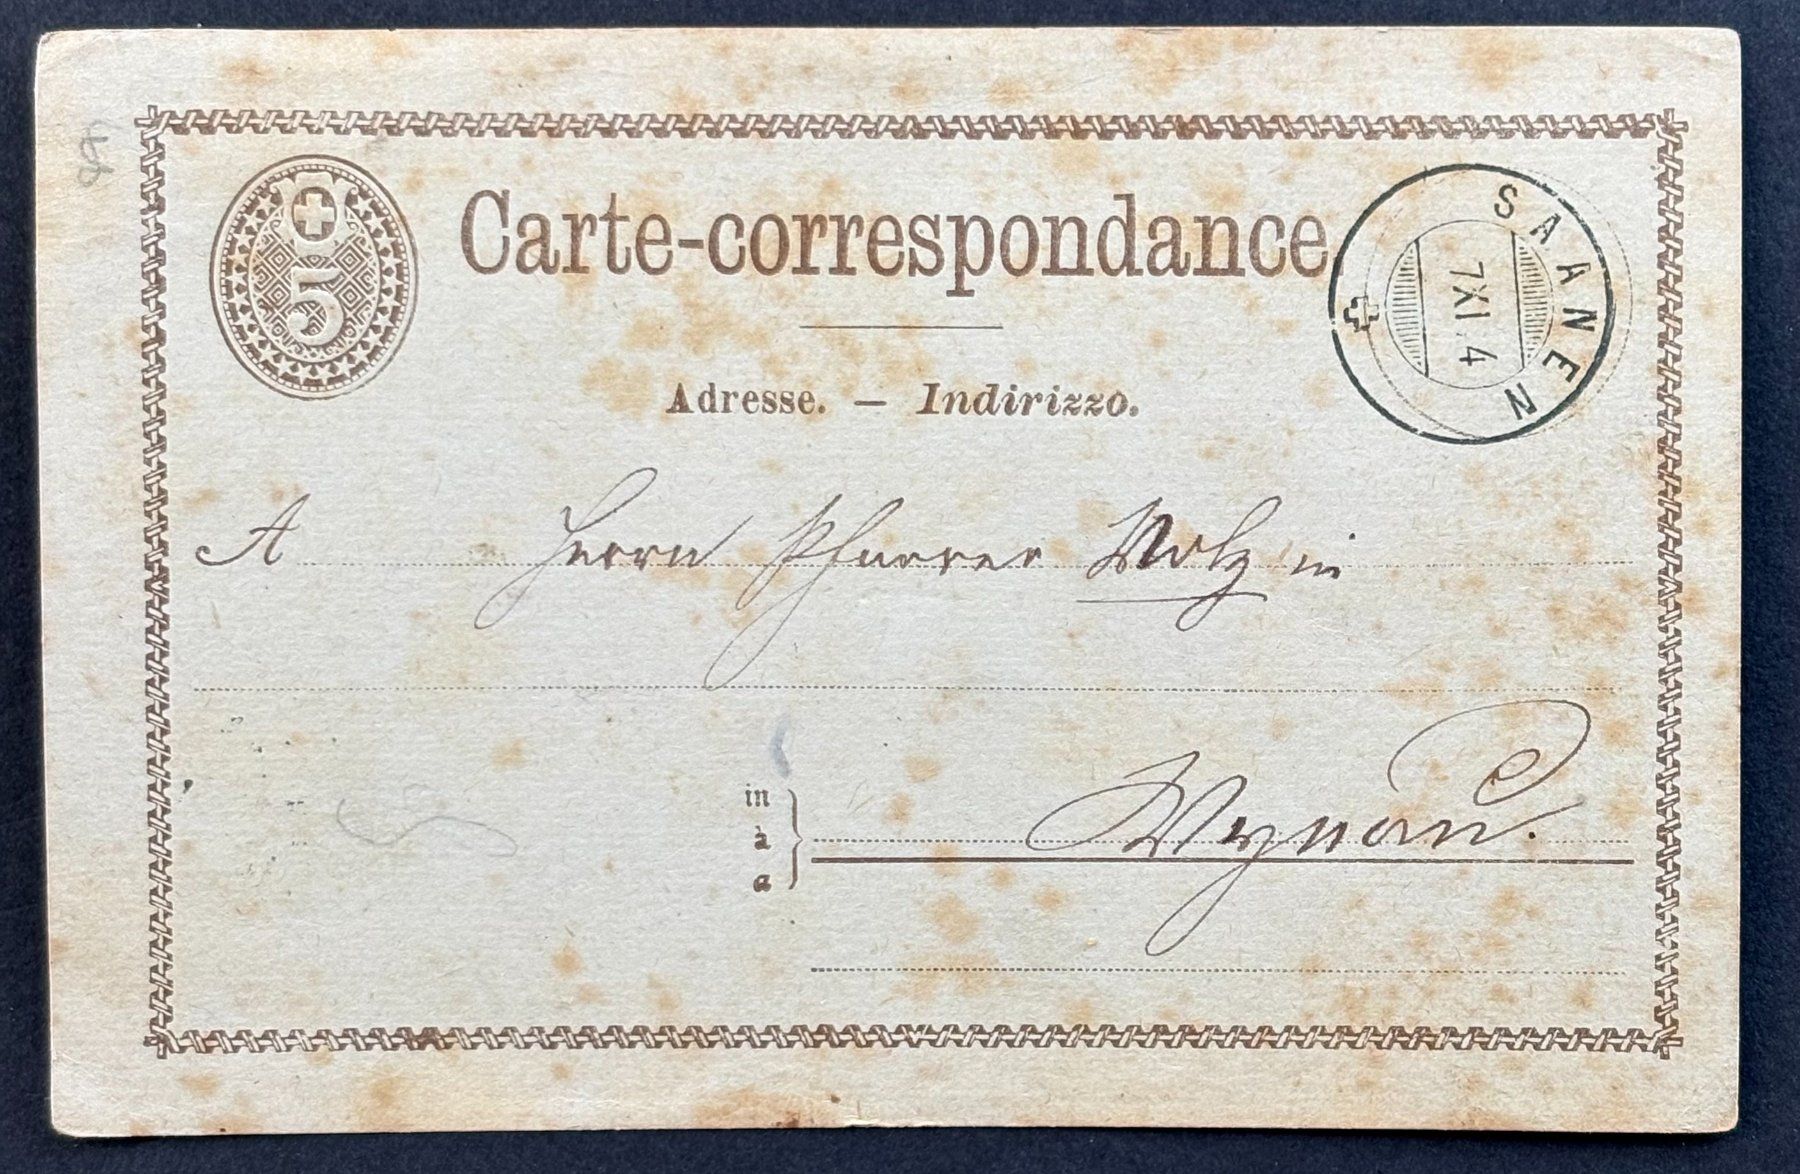 5
Carte-correspondance.
SAANEN
7 XI. 4
Adresse. — Indirizzo.
A Herrn Pfarrer Molz in
in
à
a
Wynau.